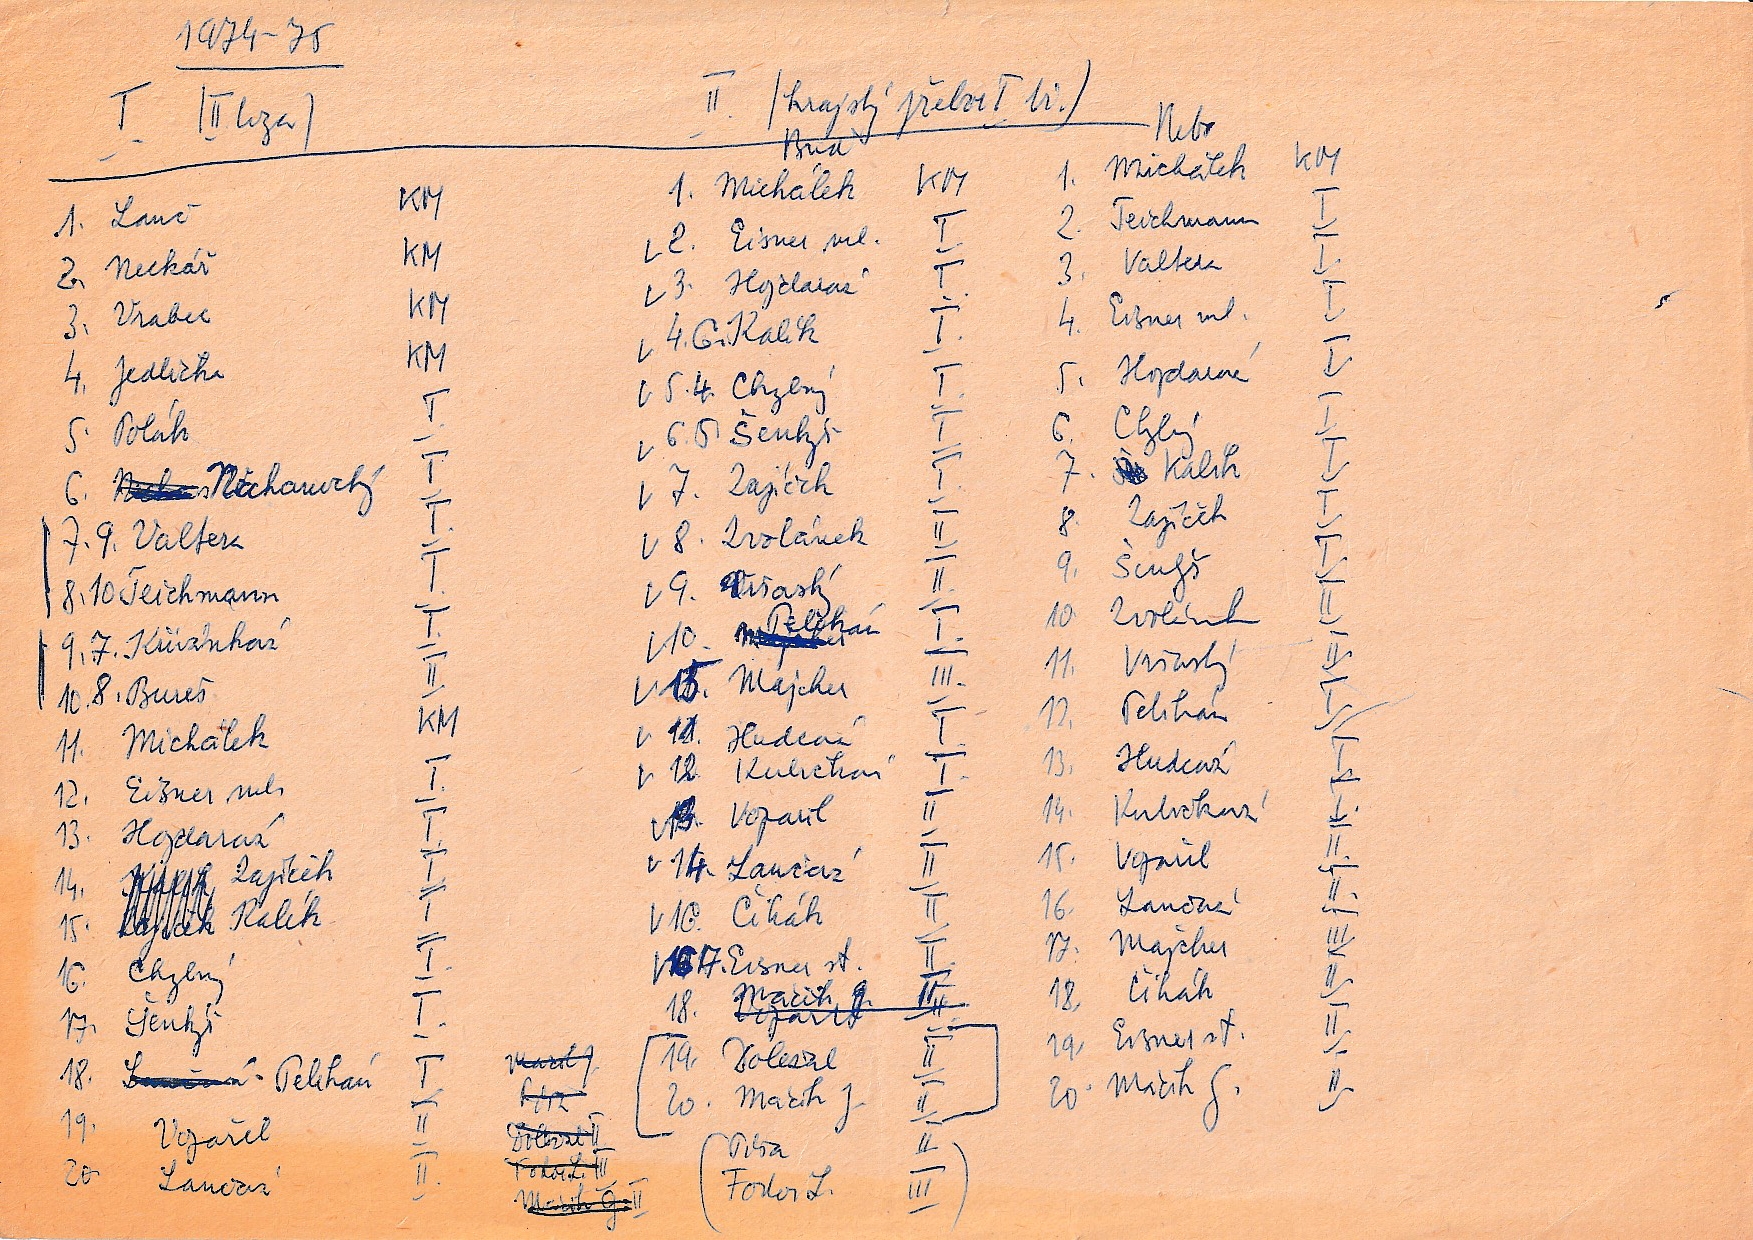 1974-75
I. (II liga)
II. (krajský přebor I tř.)
Buď
Nebo
1. Lanč KM
2. Neckář KM
3. Vrabec KM
4. Jedlička KM
5. Polák I.
6. Michanický I
7. 9. Valtera I.
8. 10 Teichmann I.
9. 7. I.
10. 8. Bureš II
11. Michálek KM
12. Eisner ml. I.
13. Hojdarová I.
14. Zajíček I
15. Kalík I
16. Chzbný I.
17. Šenkýř I.
18. Pelikán I
19. Vopařil II
20 Lančová II.
Doležal II
Fodor L. III
Mařík G. II
1. Michálek KM
2. Eisner ml. I.
3. Hojdarová I.
4. 6. Kalík I.
5. 4. Chzbný I.
6. 5 Šenkýř I
7. Zajíček I.
8. Zvolánek II
9. Vršaský II.
10. Pelikán I.
15. Majcher III.
11. Hudcová I.
12 Kubíčková I.
13. Vopařil II
14. Lančová II
16. Čihák II
17. Eisner st. II.
18. Mařík G. II
19. Doležal II
20. Mařík J. II
II
Fodor L. III
1. Michálek KM
2. Teichmann I
3. Valtera I.
4. Eisner ml. I
5. Hojdarová I
6. Chzbný I
7. Kalík I
8. Zajíček I
9. Šenkýř I.
10 Zvolánek II
11. Vršaský II
12. Pelikán I
13. Hudcová I
14. Kubíčková I.
15. Vopařil II
16. Lančová II
17. Majcher III
18. Čihák II
19. Eisner st. II
20. Mařík G. II